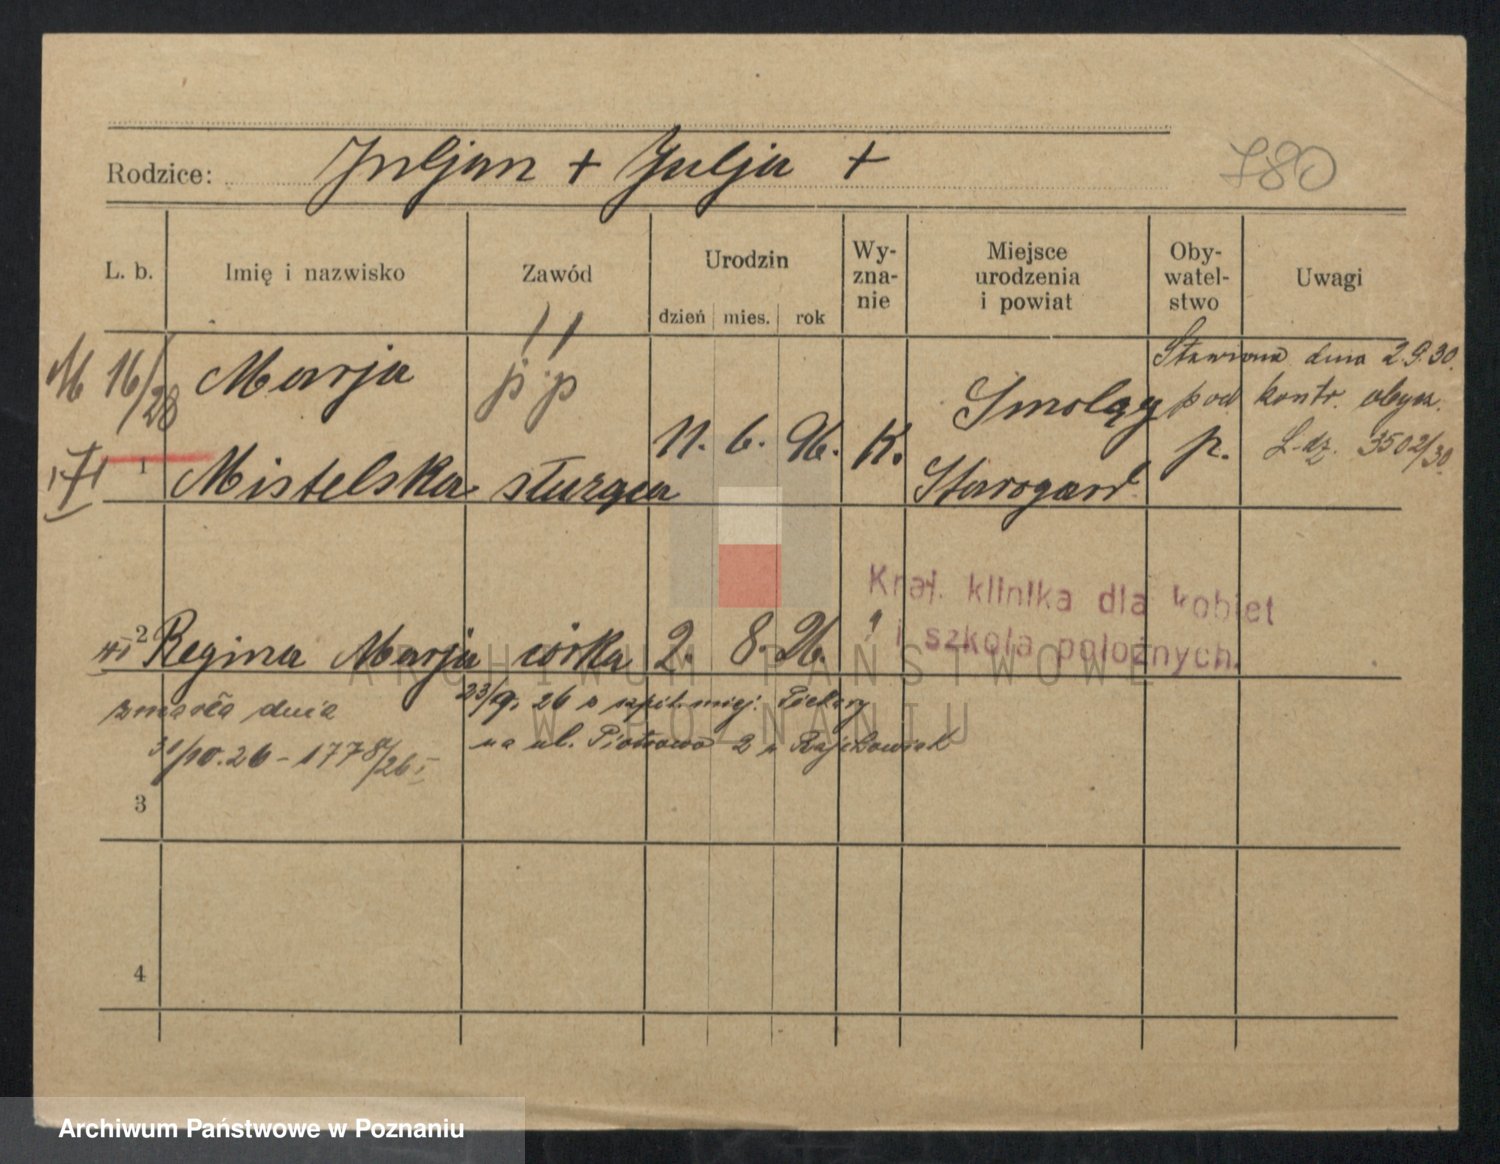 780
Rodzice: Juljan + Julja +
L. b. Imię i nazwisko Zawód Urodzin dzień mies. rok Wyznanie Miejsce urodzenia i powiat Obywatelstwo Uwagi
16/28 Marja Smolągg Stawiona dnia 2.9.30.
pod kontr. obycz.
1 Mistelska służąca 11. 6. 96. K. Starogard p. L. dz. 3502/30
Kraj. klinika dla kobiet
i szkola położnych.
2 Regina Marja córka 2. 8. 26. "
zmarła dnia 23/9. 26 szpit. miej.
31/10.26 - 1778/26 I na ul. Piotrowo 2
3
4
ARCHIWUM PAŃSTWOWE
W POZNANIU
Archiwum Państwowe w Poznaniu